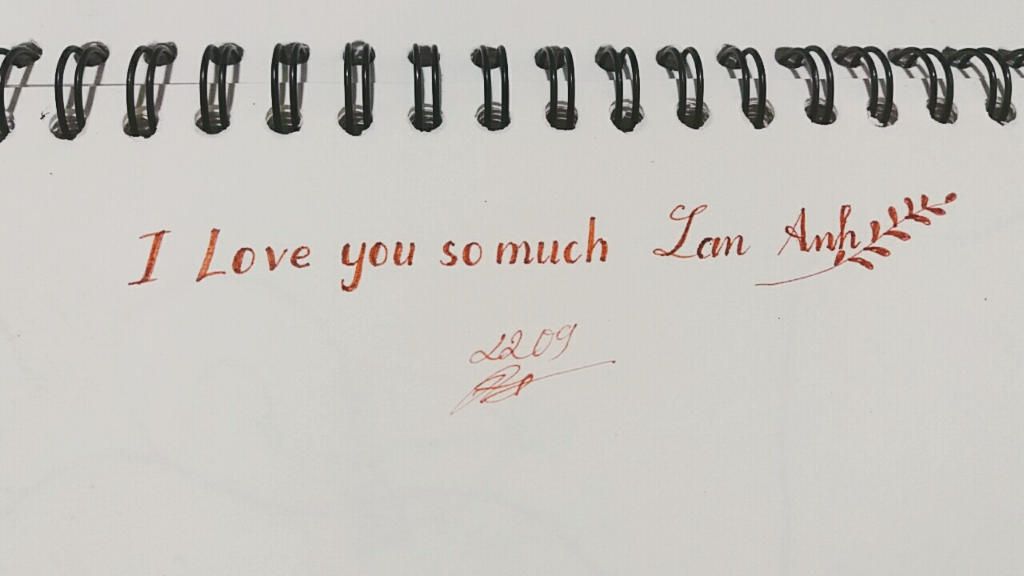 I Love you so much Lan Anh
2209